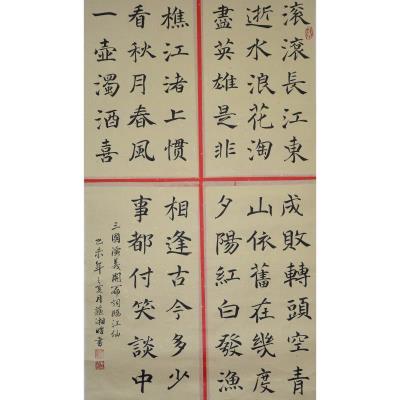 滾滾長江東
逝水浪花淘
盡英雄是非
成敗轉頭空青
山依舊在幾度
夕陽紅白發漁
樵江渚上惯
看秋月春風
一壺濁酒喜
相逢古今多少
事都付笑談中
三國演義開篇詞臨江仙
乙未年之夏月湘書